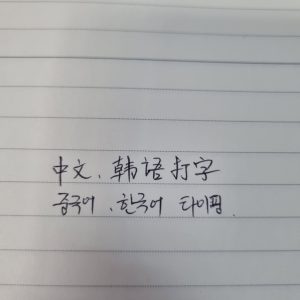 中文、韩語打字
중국어、한국어 타이핑.